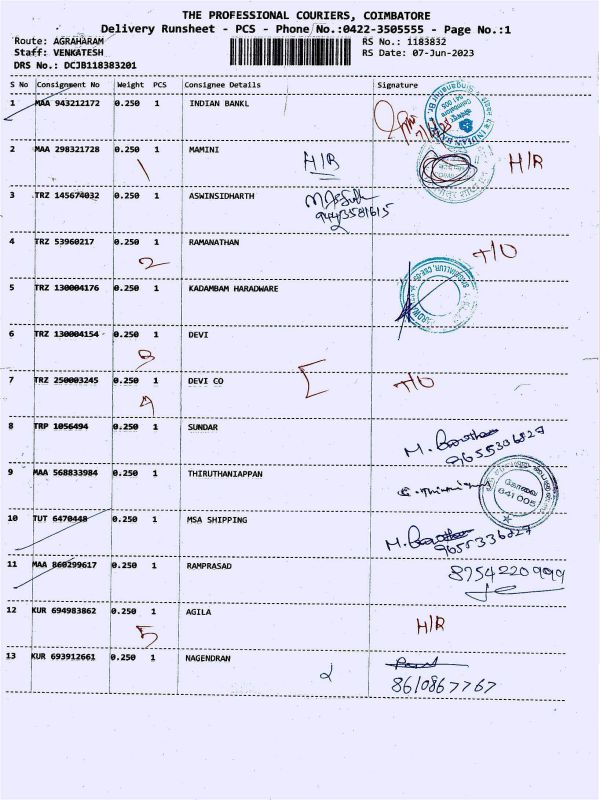 THE PROFESSIONAL COURIERS, COIMBATORE
Delivery Runsheet - PCS - Phone No.:0422-3505555 - Page No.:1
Route: AGRAHARAM RS No.: 1183832
Staff: VENKATESH RS Date: 07-Jun-2023
DRS No.: DCJB118383201
S No Consignment No Weight PCS Consignee Details Signature
1 MAA 943212172 0.250 1 INDIAN BANKL
2 MAA 298321728 0.250 1 MAMINI H/R H/R
1
3 TRZ 145674032 0.250 1 ASWINSIDHARTH
9443581615
4 TRZ 53960217 0.250 1 RAMANATHAN
2
5 TRZ 130004176 0.250 1 KADAMBAM HARADWARE
6 TRZ 130004154 0.250 1 DEVI
3
7 TRZ 250003245 0.250 1 DEVI CO
4
8 TRP 1056494 0.250 1 SUNDAR
9655336827
9 MAA 568833984 0.250 1 THIRUTHANIAPPAN
கோவை
641 005
10 TUT 6470448 0.250 1 MSA SHIPPING
9655336827
11 MAA 860299617 0.250 1 RAMPRASAD 8754220999
12 KUR 694983862 0.250 1 AGILA H/R
5
13 KUR 693912661 0.250 1 NAGENDRAN
8610867767